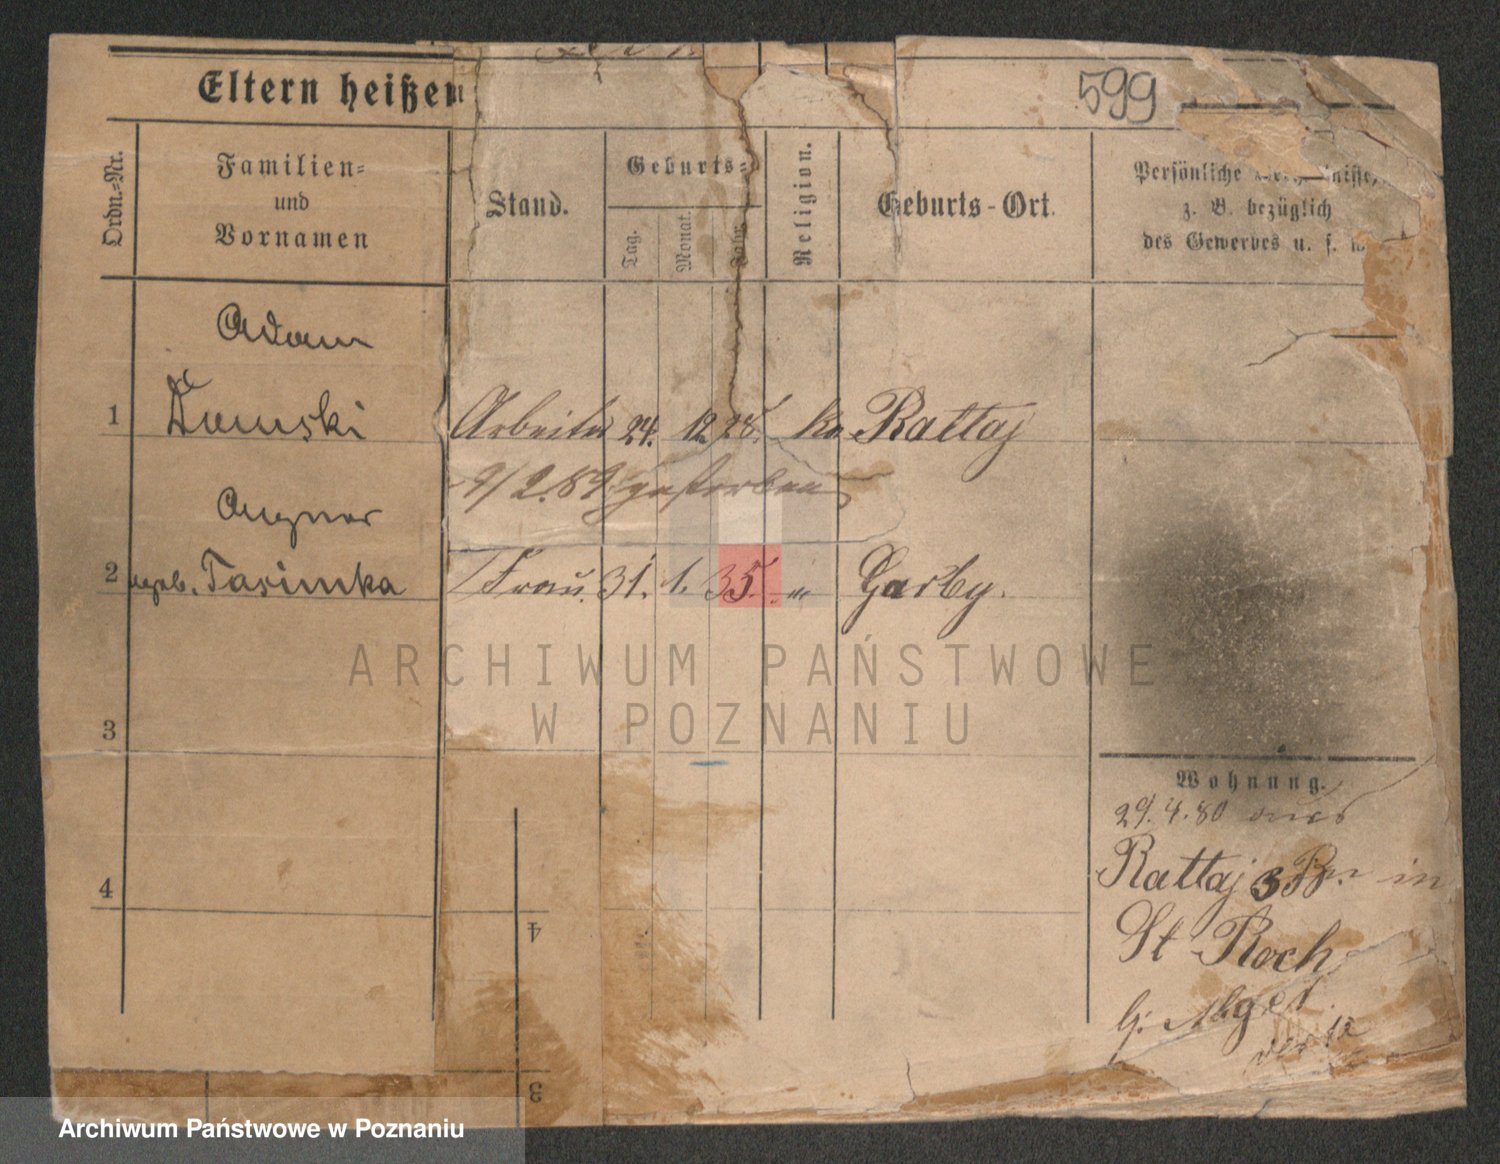 599
Eltern heißen
Ordn.-Nr.
Familien-
und
Vornamen
Stand.
Geburts-
Tag.
Monat.
Jahr.
Religion.
Geburts-Ort.
Persönliche
z. B. bezüglich
des Gewerbes u. s. w.
Adam
1 Damski Arbeiter 24. 12 28. ka Rattaj
9/2.89 gestorben
2 geb. Tasimka Frau 31. 1. 35. Garby.
3
4
Wohnung.
29.4.80 aus
Rattaj 3 in
St Roch
4
3
ARCHIWUM PAŃSTWOWE
W POZNANIU
Archiwum Państwowe w Poznaniu